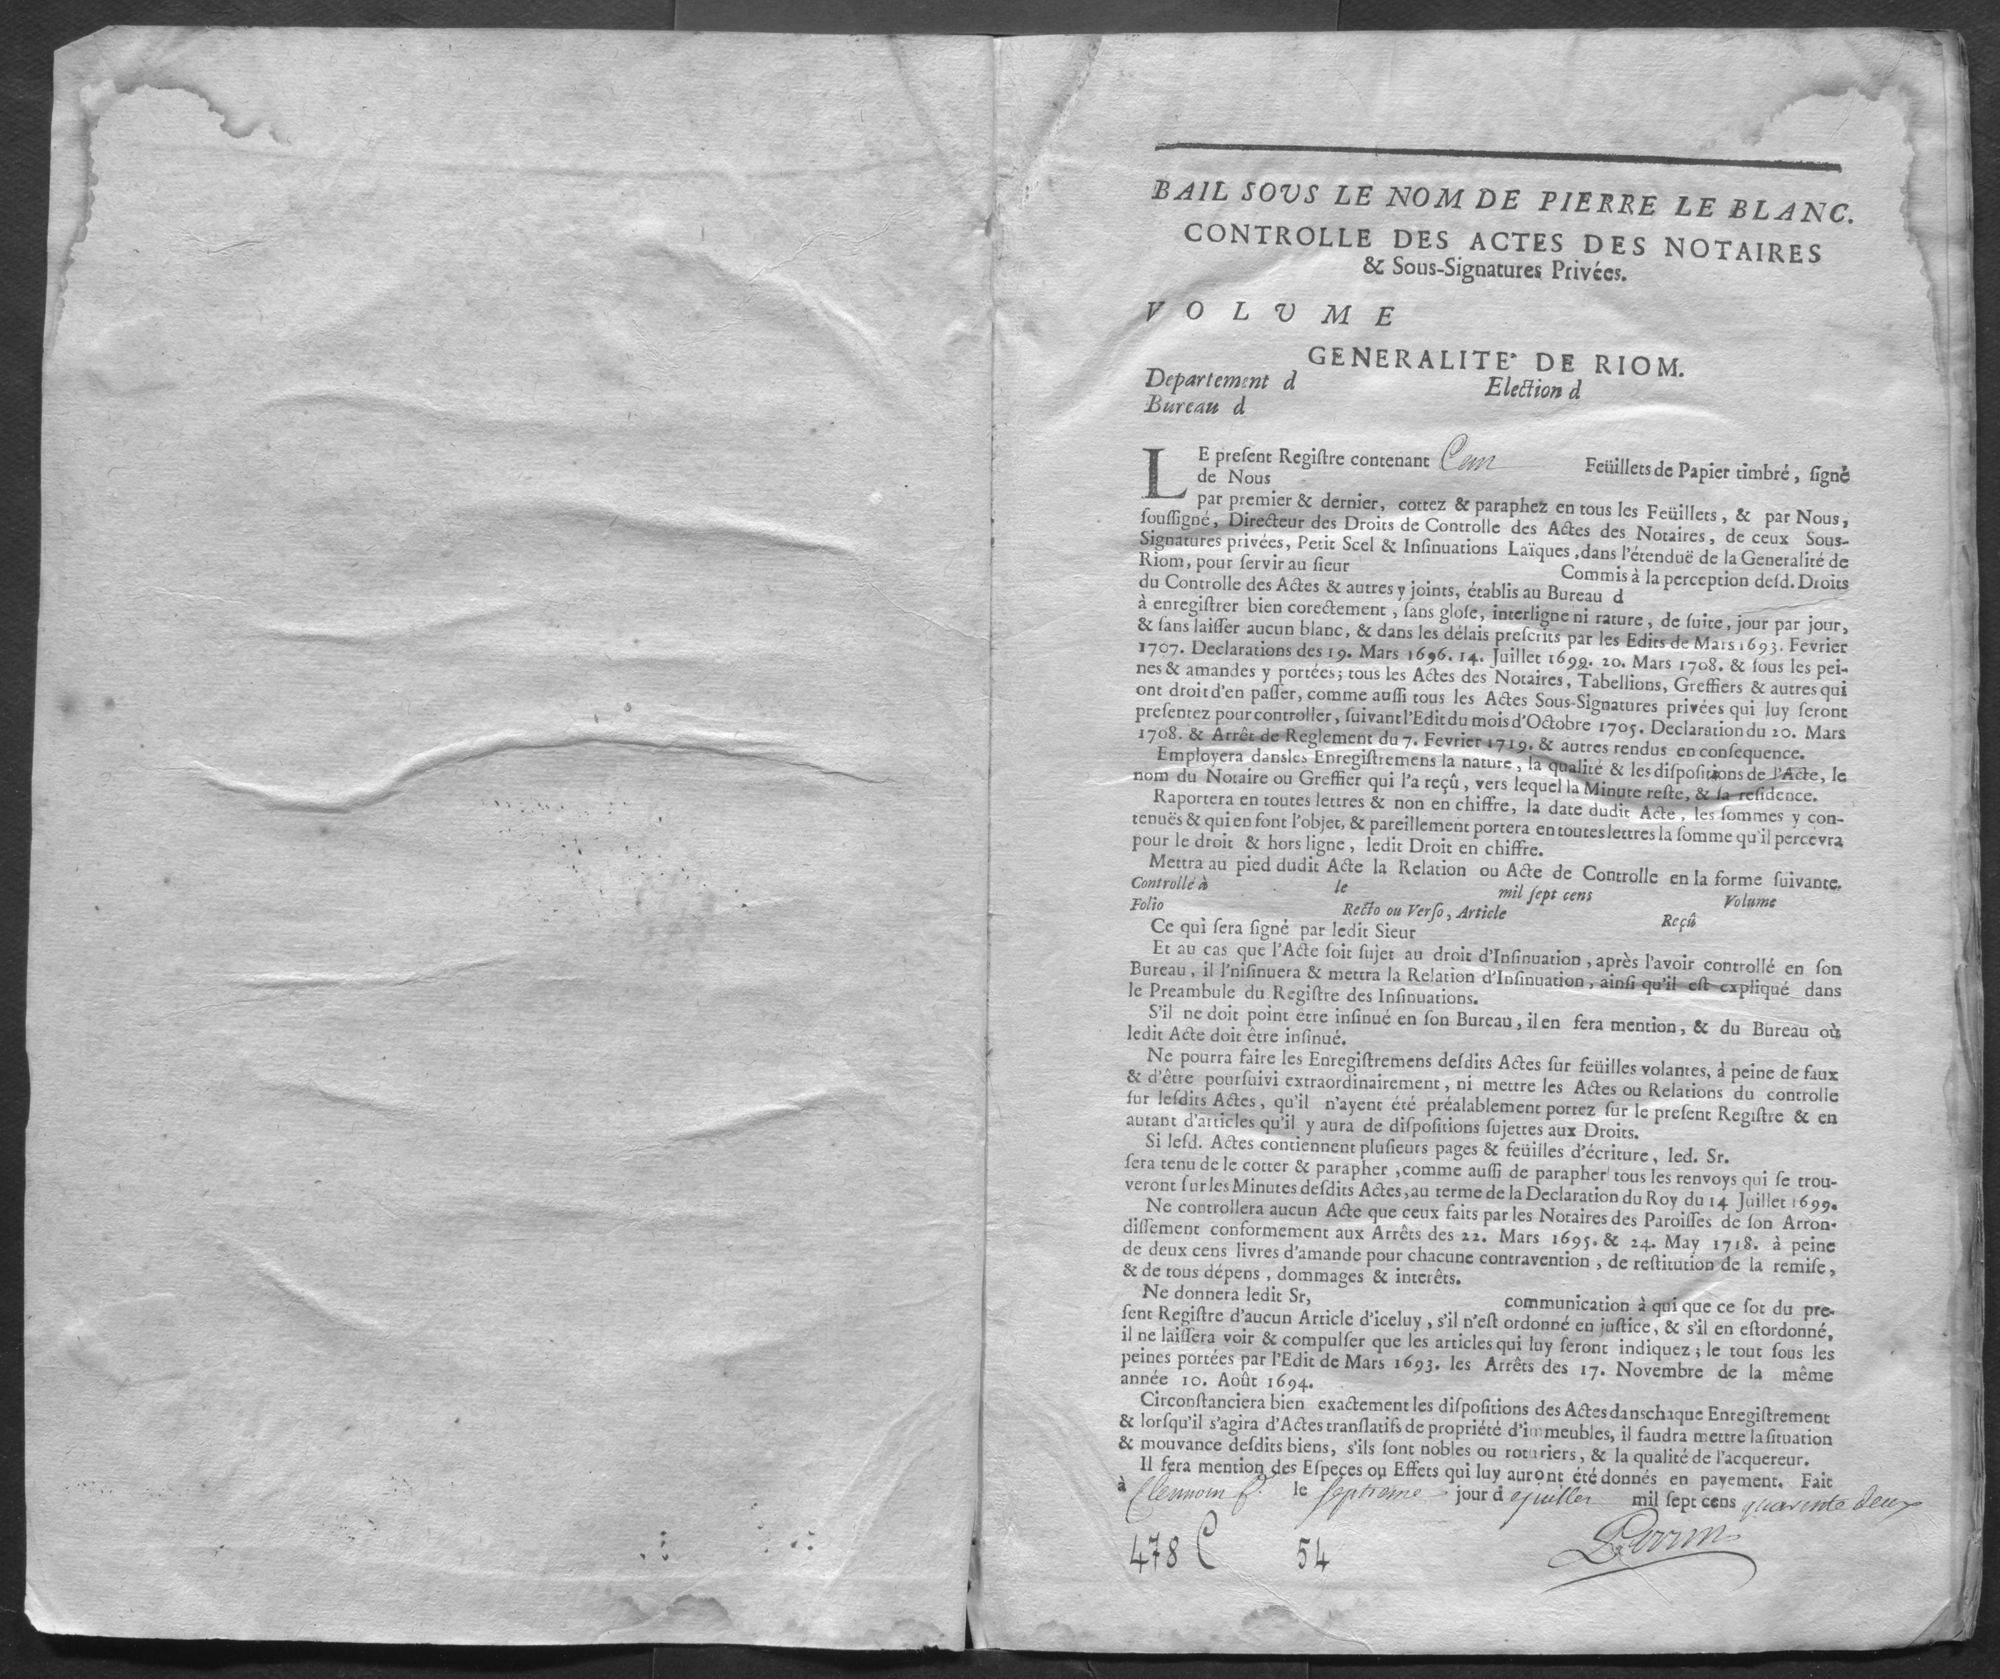 BAIL SOUS LE NOM DE PIERRE LE BLANC.
CONTROLLE DES ACTES DES NOTAIRES
& Sous-Signatures Privées.
VOLUME
GENERALITE' DE RIOM.
Departement d Election d
Bureau d
LE preſent Regiſtre contenant Cent Feüillets de Papier timbré, ſigné
de Nous
par premier & dernier, cottez & paraphez en tous les Feüillets, & par Nous,
ſouſſigné, Directeur des Droits de Controlle des Actes des Notaires, de ceux Sous-
Signatures privées, Petit Scel & Inſinuations Laïques, dans l'étenduë de la Generalité de
Riom, pour ſervir au ſieur Commis à la perception deſd. Droits
du Controlle des Actes & autres y joints, établis au Bureau d
à enregiſtrer bien corectement, ſans gloſe, interligne ni rature, de ſuite, jour par jour,
& ſans laiſſer aucun blanc, & dans les délais preſcrits par les Edits de Mars 1693. Fevrier
1707. Declarations des 19. Mars 1696. 14. Juillet 1699. 20. Mars 1708. & ſous les pei-
nes & amandes y portées; tous les Actes des Notaires, Tabellions, Greffiers & autres qui
ont droit d'en paſſer, comme auſſi tous les Actes Sous-Signatures privées qui luy ſeront
preſentez pour controller, ſuivant l'Edit du mois d'Octobre 1705. Declaration du 20. Mars
1708. & Arrêt de Reglement du 7. Fevrier 1719. & autres rendus en conſequence.
Employera dans les Enregiſtremens la nature, la qualité & les diſpoſitions de l'Acte, le
nom du Notaire ou Greffier qui l'a reçû, vers lequel la Minute reſte, & ſa reſidence.
Raportera en toutes lettres & non en chiffre, la date dudit Acte, les ſommes y con-
tenuës & qui en font l'objet, & pareillement portera en toutes lettres la ſomme qu'il percevra
pour le droit & hors ligne, ledit Droit en chiffre.
Mettra au pied dudit Acte la Relation ou Acte de Controlle en la forme ſuivante.
Controllé à le mil ſept cens Volume
Folio Recto ou Verſo, Article Reçû
Ce qui ſera ſigné par ledit Sieur
Et au cas que l'Acte ſoit ſujet au droit d'Inſinuation, après l'avoir controllé en ſon
Bureau, il l'niſinuera & mettra la Relation d'Inſinuation, ainſi qu'il eſt expliqué dans
le Preambule du Regiſtre des Inſinuations.
S'il ne doit point être inſinué en ſon Bureau, il en fera mention, & du Bureau où
ledit Acte doit être inſinué.
Ne pourra faire les Enregiſtremens deſdits Actes ſur feüilles volantes, à peine de faux
& d'être pourſuivi extraordinairement, ni mettre les Actes ou Relations du controlle
ſur leſdits Actes, qu'il n'ayent été préalablement portez ſur le preſent Regiſtre & en
autant d'articles qu'il y aura de diſpoſitions ſujettes aux Droits.
Si leſd. Actes contiennent pluſieurs pages & feüilles d'écriture, led. Sr.
ſera tenu de le cotter & parapher, comme auſſi de parapher tous les renvoys qui ſe trou-
veront ſur les Minutes deſdits Actes, au terme de la Declaration du Roy du 14 Juillet 1699.
Ne controllera aucun Acte que ceux faits par les Notaires des Paroiſſes de ſon Arron-
diſſement conformement aux Arrêts des 22. Mars 1695. & 24. May 1718. à peine
de deux cens livres d'amande pour chacune contravention, de reſtitution de la remiſe,
& de tous dépens, dommages & interêts.
Ne donnera ledit Sr, communication à qui que ce ſot du pre-
ſent Regiſtre d'aucun Article d'iceluy, s'il n'eſt ordonné en juſtice, & s'il en eſtordonné,
il ne laiſſera voir & compulſer que les articles qui luy ſeront indiquez; le tout ſous les
peines portées par l'Edit de Mars 1693. les Arrêts des 17. Novembre de la même
année 10. Août 1694.
Circonſtanciera bien exactement les diſpoſitions des Actes danschaque Enregiſtrement
& lorſqu'il s'agira d'Actes tranſlatifs de propriété d'immeubles, il faudra mettre la ſituation
& mouvance deſdits biens, s'ils ſont nobles ou roturiers, & la qualité de l'acquereur.
Il fera mention des Eſpeces ou Effets qui luy auront été donnés en payement. Fait
à Clermont f.d le ſeptieme jour d ejuillet mil ſept cens quarente deux
478 C 54 Perrin